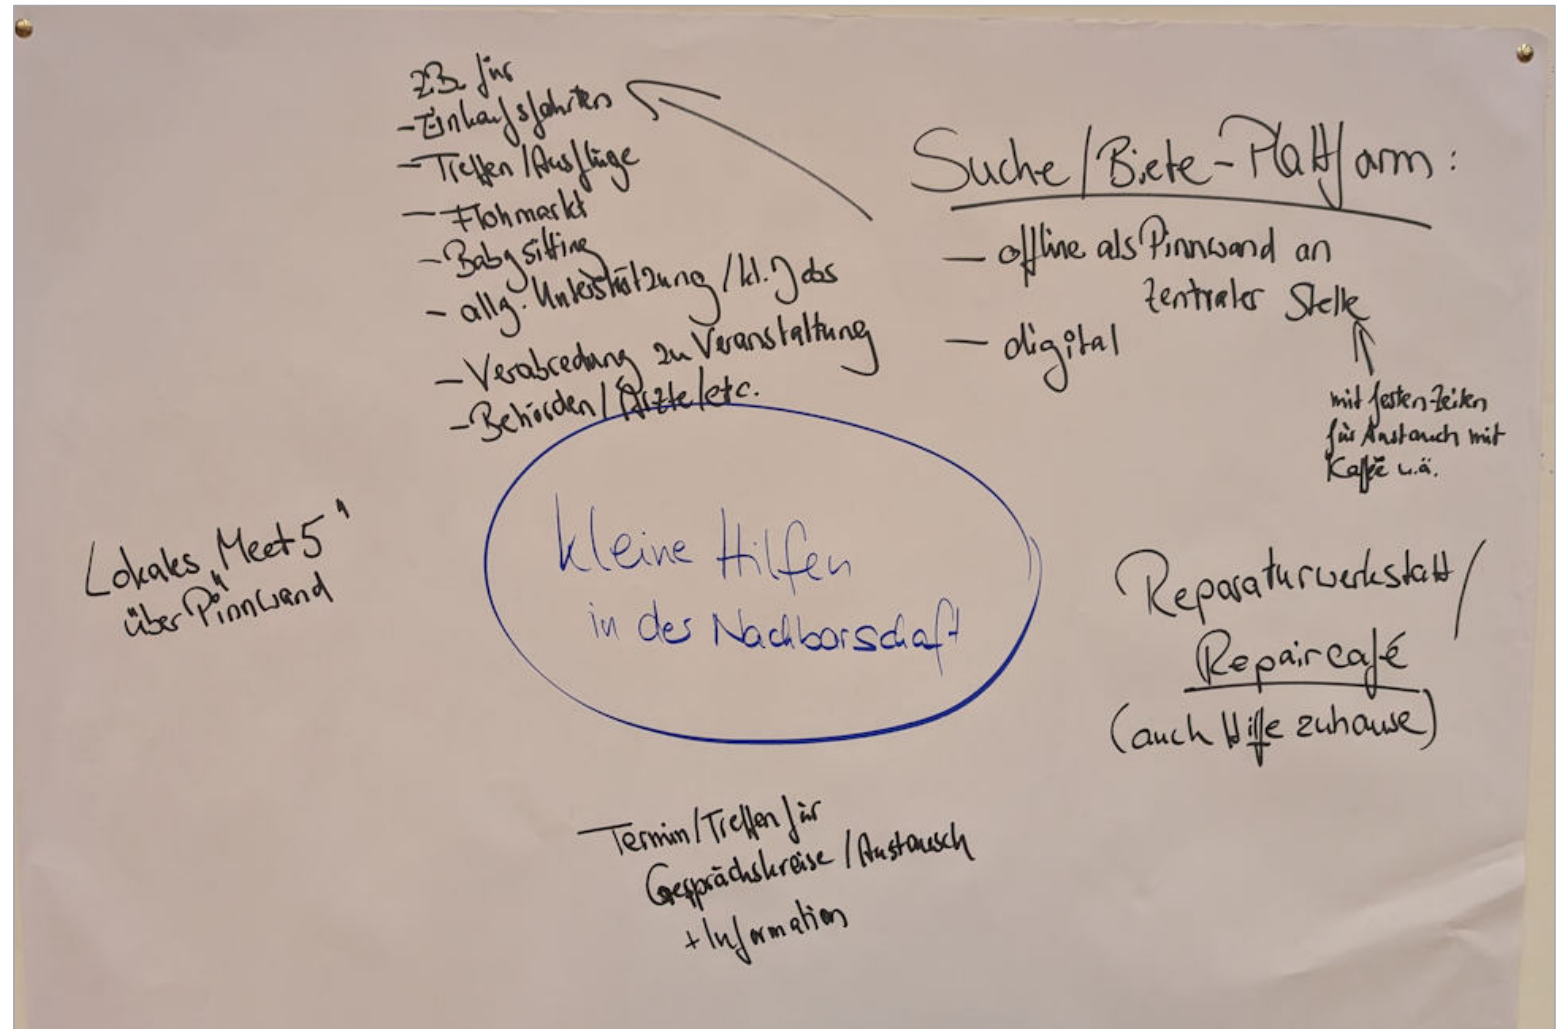 z.B. für
- Einkaufsfahrten
- Treffen/Ausflüge
- Flohmarkt
- Babysitting
- allg. Unterstützung/kl. Jobs
- Verabredung zu Veranstaltung
- Behörden/Ärzte/etc.
Suche/Biete-Plattform:
- offline als Pinnwand an
zentraler Stelle
- digital
mit festen Zeiten
für Austauch mit
Kaffee u.ä.
kleine Hilfen
in der Nachbarschaft
Lokales „Meet5“
über Pinnwand
Reparaturwerkstatt/
Repaircafé
(auch Hilfe zuhause)
Termin/Treffen für
Gesprächskreise/Austausch
+ Information